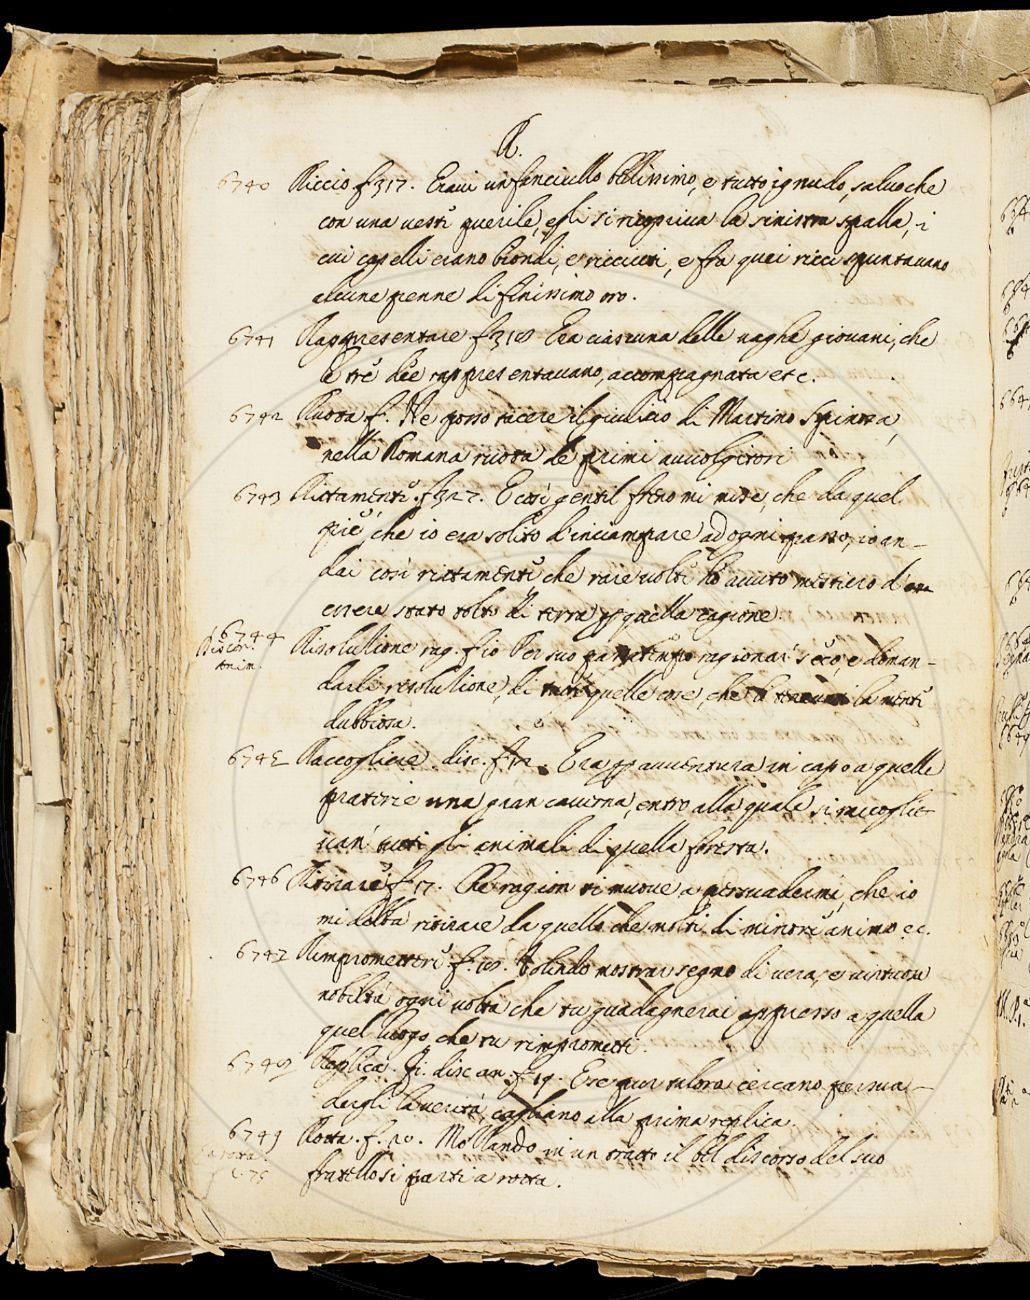 R.
6740 Riccio f. 317. Eravi un fanciullo bellissimo, e tutto ignudo, salvo che
con una veste puerile, egli si ricopriva la sinistra spalla, i
cui capelli erano biondi, e ricciuti, e fra quei ricci spuntavano
alcune penne di finissimo oro.
6741 Rappresentare f. 318 Era ciascuna delle vaghe giovani, che
le tré dèe rappresentavano, accompagnata etc.
6742 Ruota f. Ne posso tacere il giudicio di Martino Spinosa,
nella Romana ruota de primi auvolgitori
6743 Rattamente. f. 327. E così gentil freno mi mise, che da quel
piè, che io era solito d'inciampare ad ogni passo, io an-
dai così rattamente che rare volte hò avuto mestiero d'
essere stato tolto di terra p quella cagione.
6744 Risoluzione rag. f. 10 Per suo passatempo ragionar seco, e doman-
Discor.
anim.
darli resoluzione, di quelle cose, che la mente
dubbiosa.
6745 Raccogliere disc. f. 12. Era p avventura in capo a quelle
praterie una gran caverna, entro alla quale si raccoglie-
van' tutti gli animali di quella foresta.
6746 Ritirare f. 17. Che ragion ti muove a persuadermi, che io
mi debba ritirare da quello che molti di minore animo ec.
6747 Rimpromettere f. 18. nostrar segno di vera, e virtuosa
nobiltà ogni volta che tu guadagnerai appresso a quella
quel luogo che tu rimprometti.
6748 Replica. Fi. disc. an. f. 19. E se pur talora cercano persua-
dergli la verità, cagliano alla prima replica.
6749 Rotta. f. 20. Mozzando in un tratto il bel discorso del suo
a rotta
c. 75
fratello si partì a rotta.